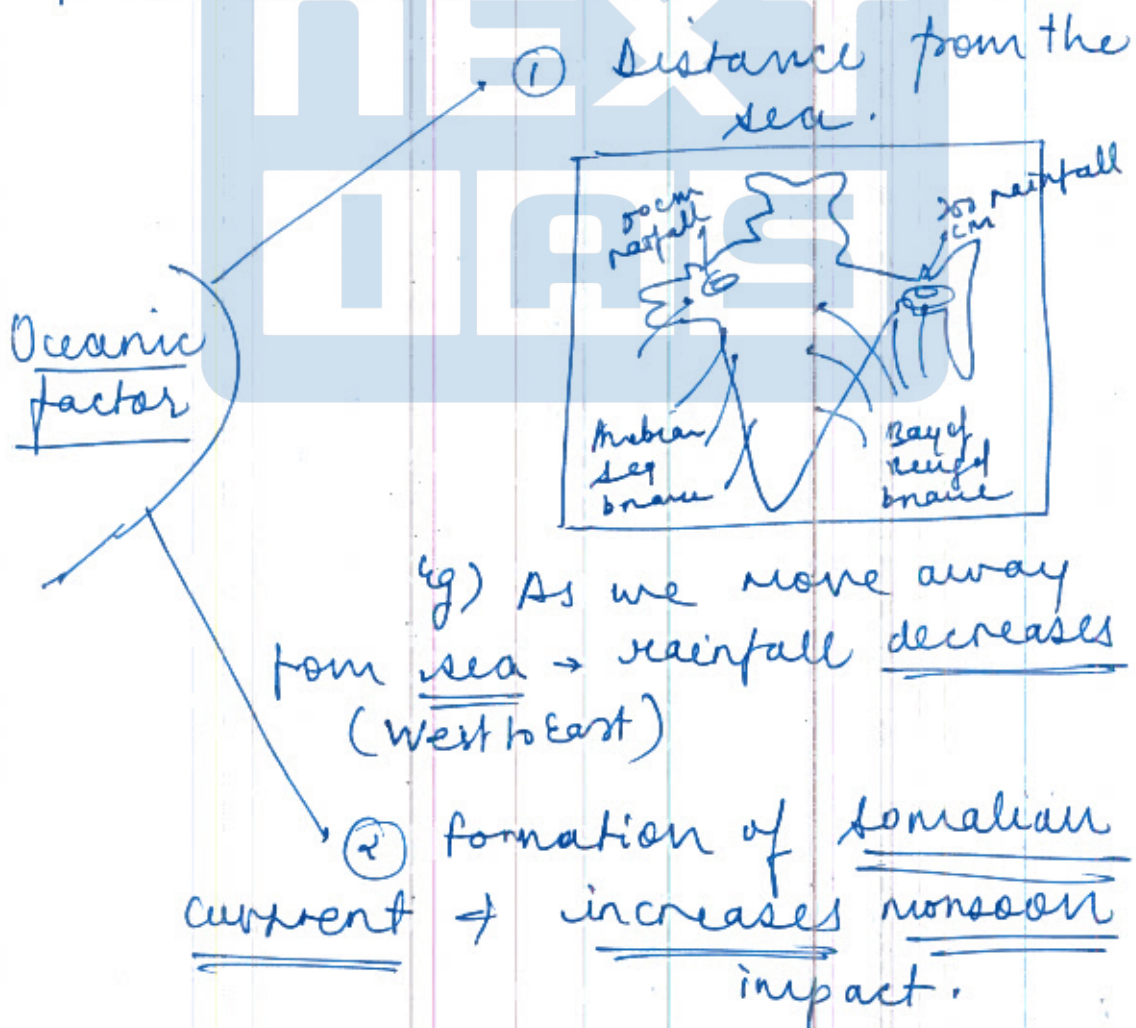 NEXT
IAS
① Distance from the
sea.
rainfall
rainfall
cm
Oceanic
factor
Arabian
sea
branch
Bay of
branch
eg) As we move away
from sea → rainfall decreases
(West to East)
② formation of Somalian
current → increases monsoon
impact.